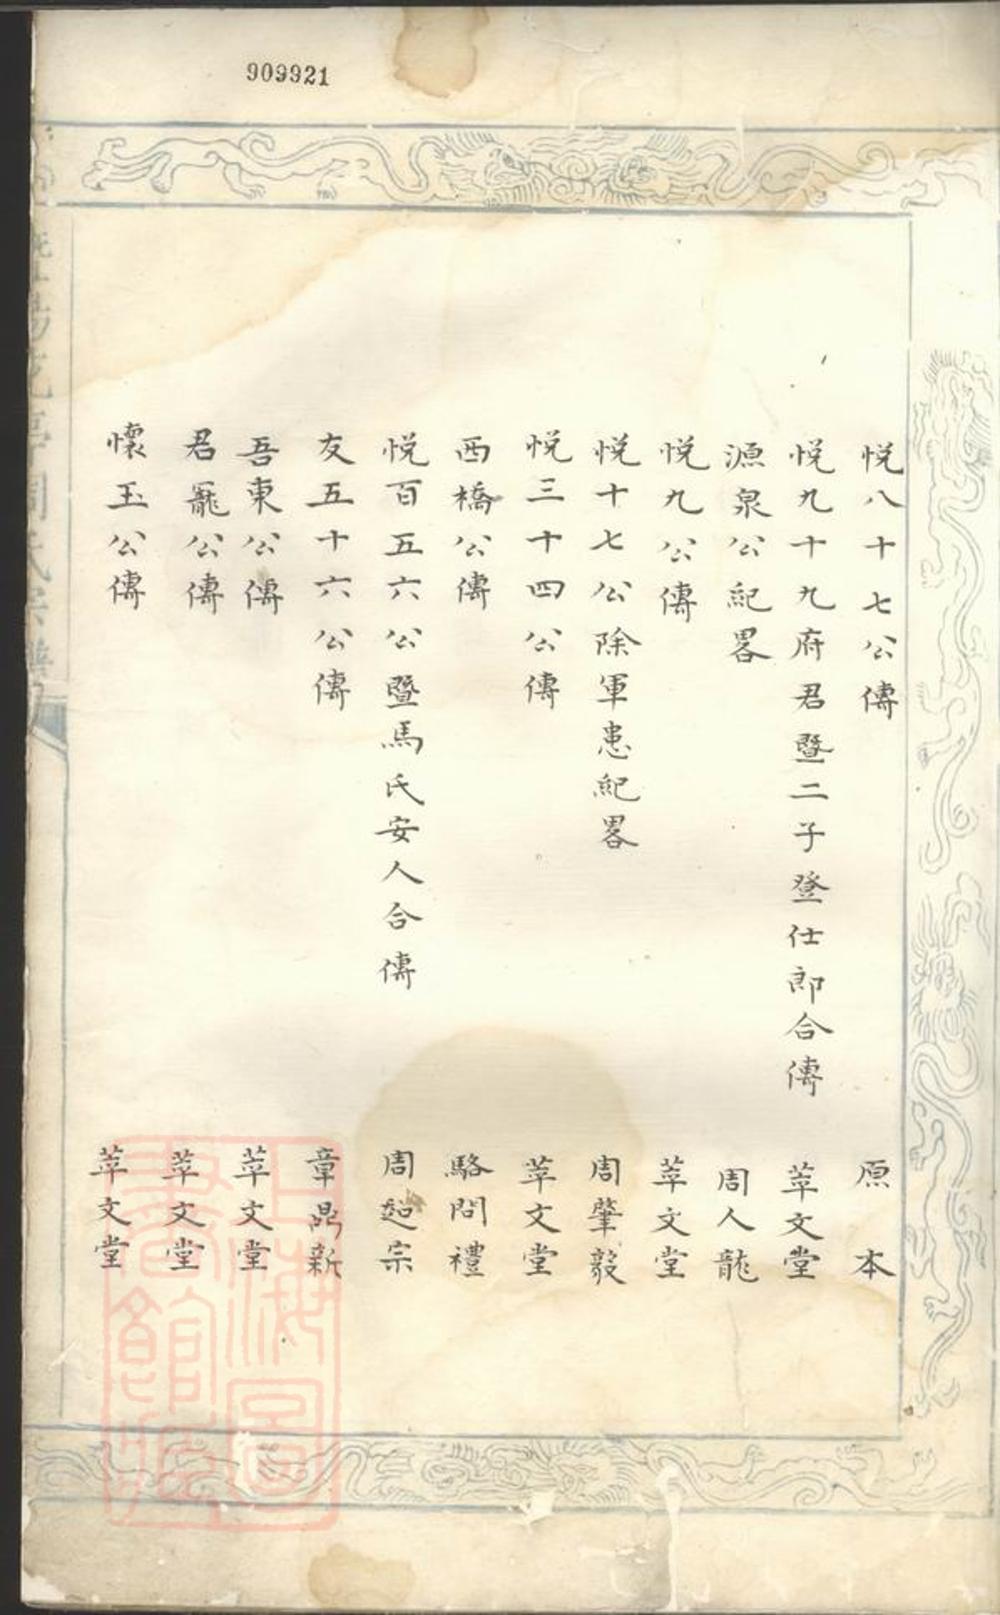 909921
悅八十七公傳 原本
悅九十九府君暨二子登仕郎合傳 萃文堂
源泉公紀畧 周人龍
悅九公傳 萃文堂
悅十七公除軍患紀畧 周肇毅
悅三十四公傳 萃文堂
西橋公傳 駱問禮
悅百五六公暨馬氏安人合傳 周超宗
友五十六公傳 章鼎新
吾東公傳 萃文堂
君寵公傳 萃文堂
懷玉公傳 萃文堂
上海圖書館藏